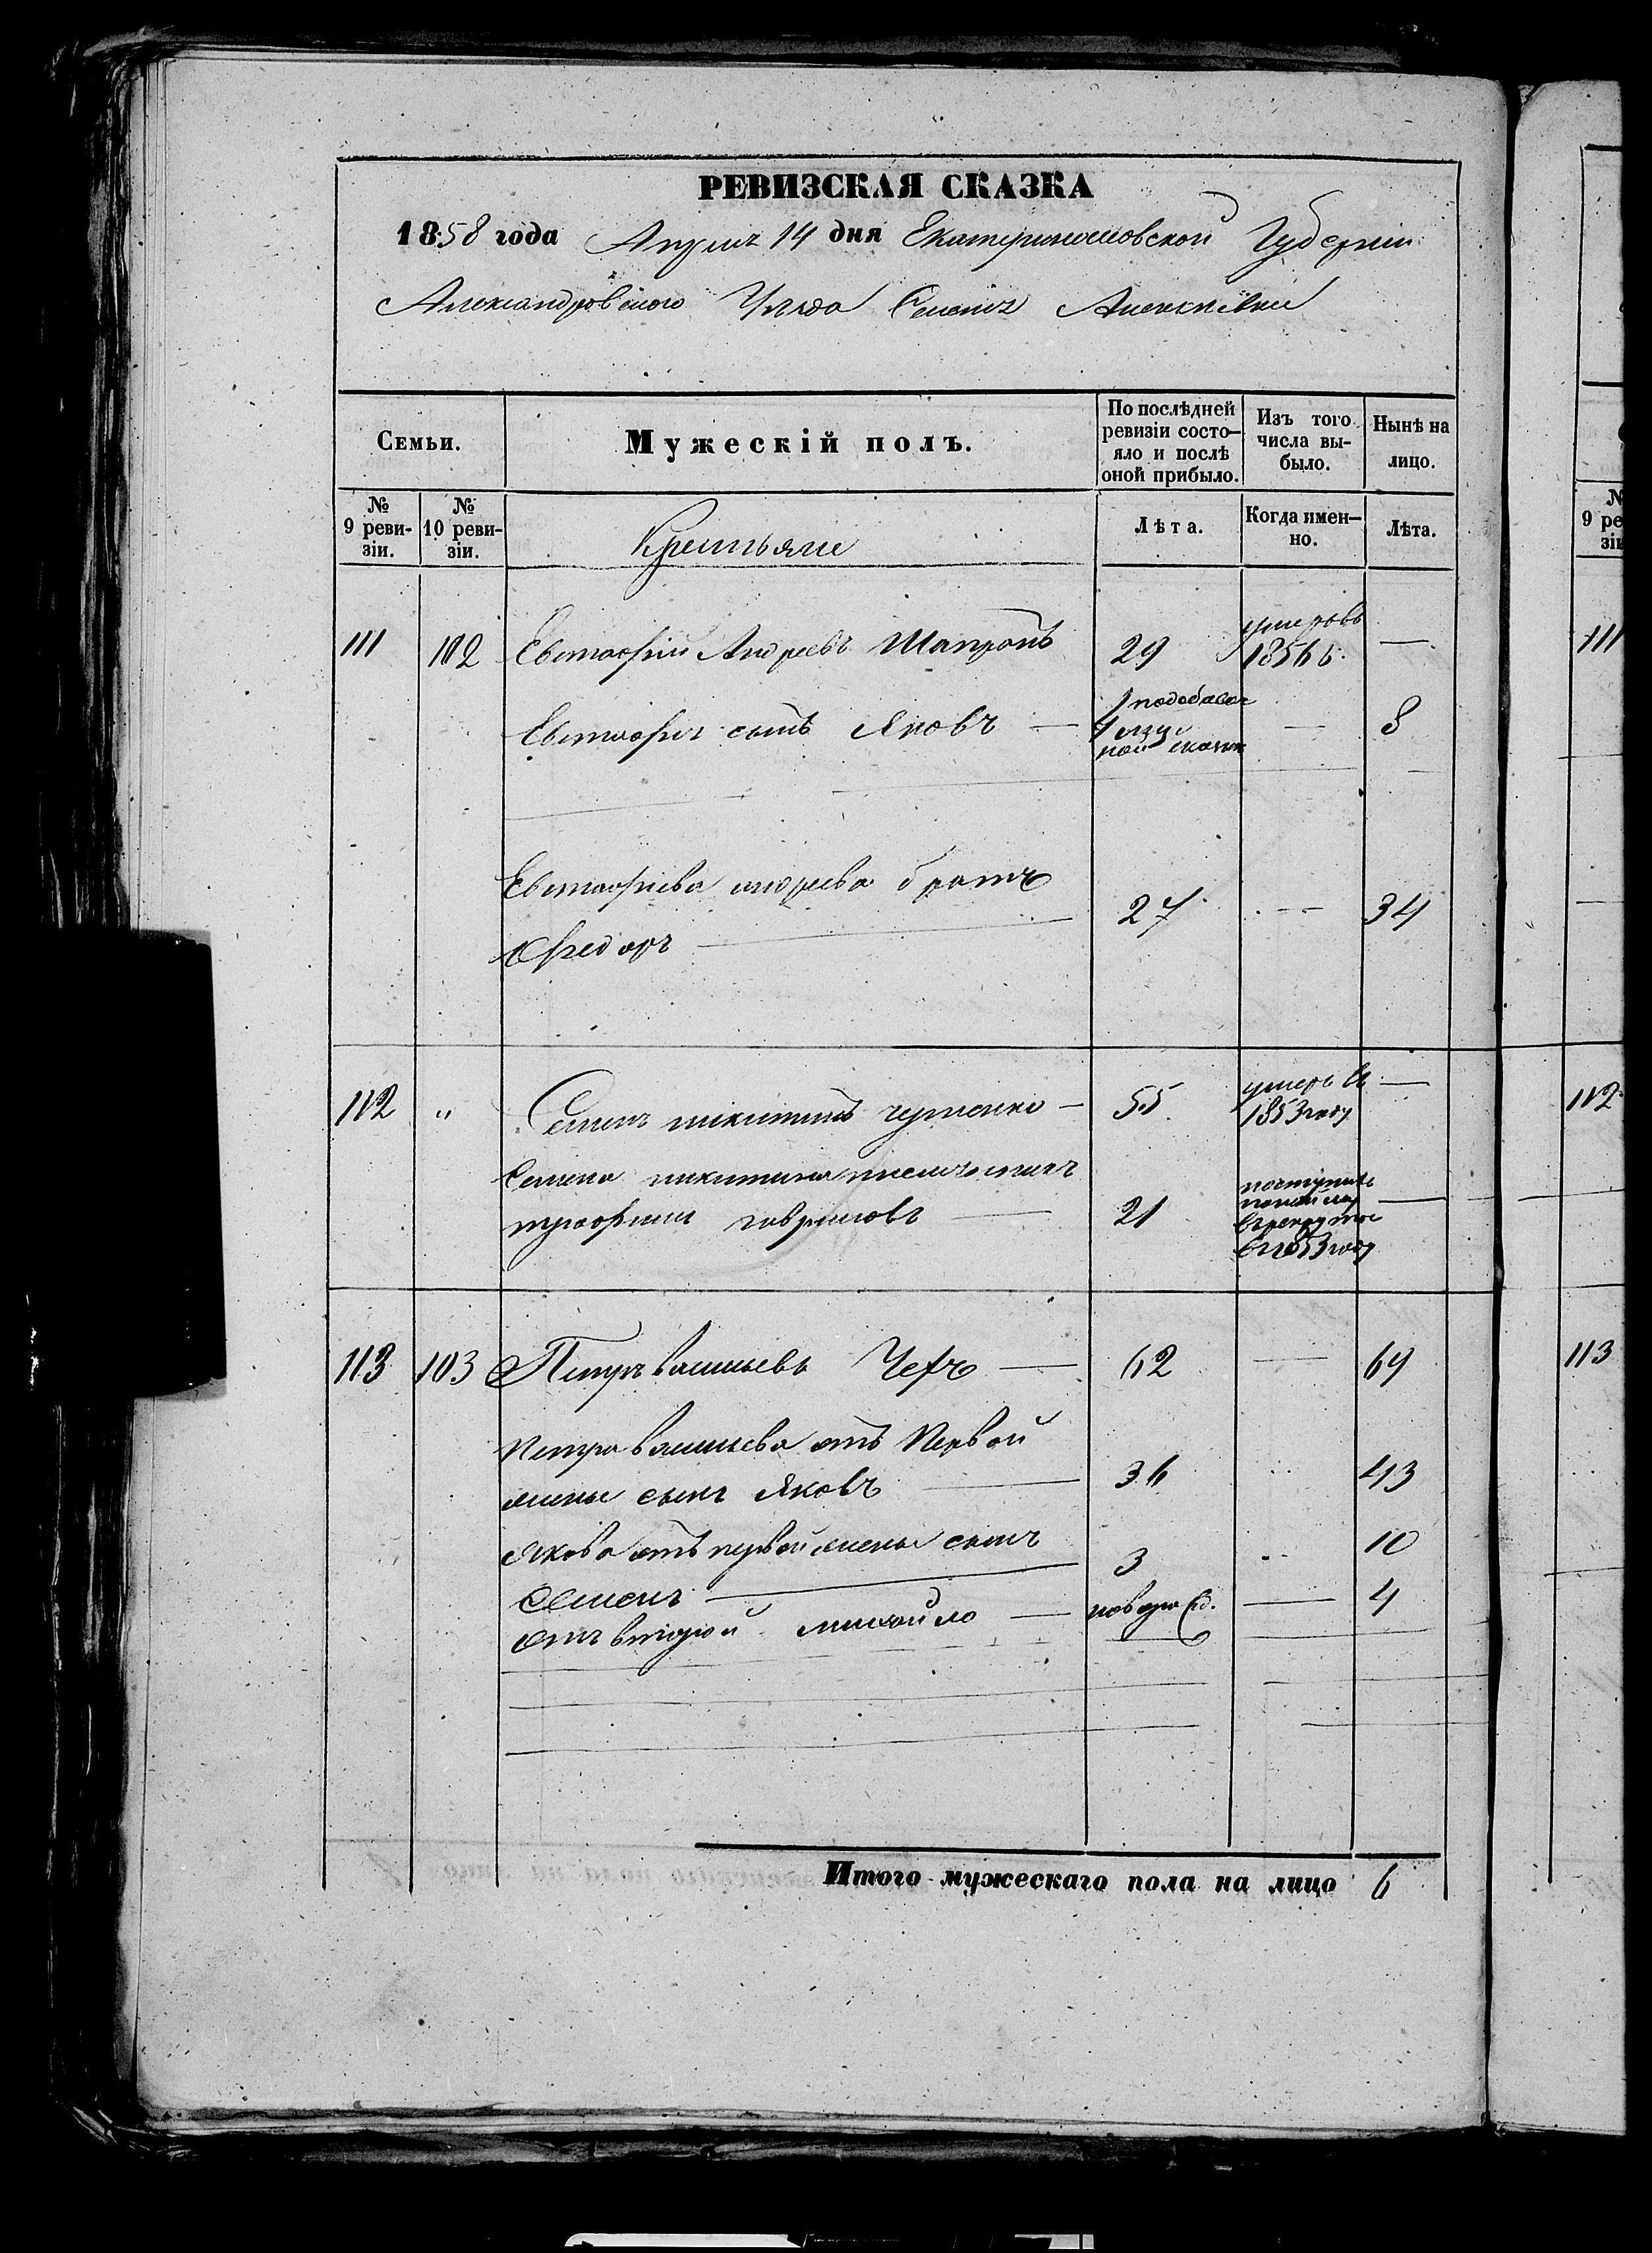 РЕВИЗСКАЯ СКАЗКА
1858 года Апреля 14 дня Екатеринославской Губернии
Александровского Уезда Селения Алексеевки
Семьи.
Мужескій полъ.
По послѣдней ревизіи состо-
яло и послѣ
оной прибыло.
Изъ того
числа вы-
было.
Нынѣ на
лицо.
№
9 реви-
зіи.
№
10 реви-
зіи.
Крестьяне
Лѣта.
Когда имен-
но.
Лѣта.
111 102 Евстафий Андреевъ Шапранъ 29 умеръ въ 1856 —
Евстафия сынъ Яковъ — 1 — 8
Евстафиева андреева братъ
Федоръ — 27 — 34
112 " Семенъ никитинъ — 55 умеръ въ 1853 году —
Семена никитина племянникъ
трофимъ гавриловъ — 21 поступилъ
въ рекруты
въ 1853 году —
113 103 Петръ васильевъ Чехъ — 62 — 69
Петра васильева отъ Первой
жены сынъ Яковъ — 36 " 43
Якова отъ первой жены сынъ
Семенъ — 3 " 10
отъ второй михайло — новорожд. — 4
Итого мужескаго пола на лицо 6
№
9 ре
зіи
111
112
113